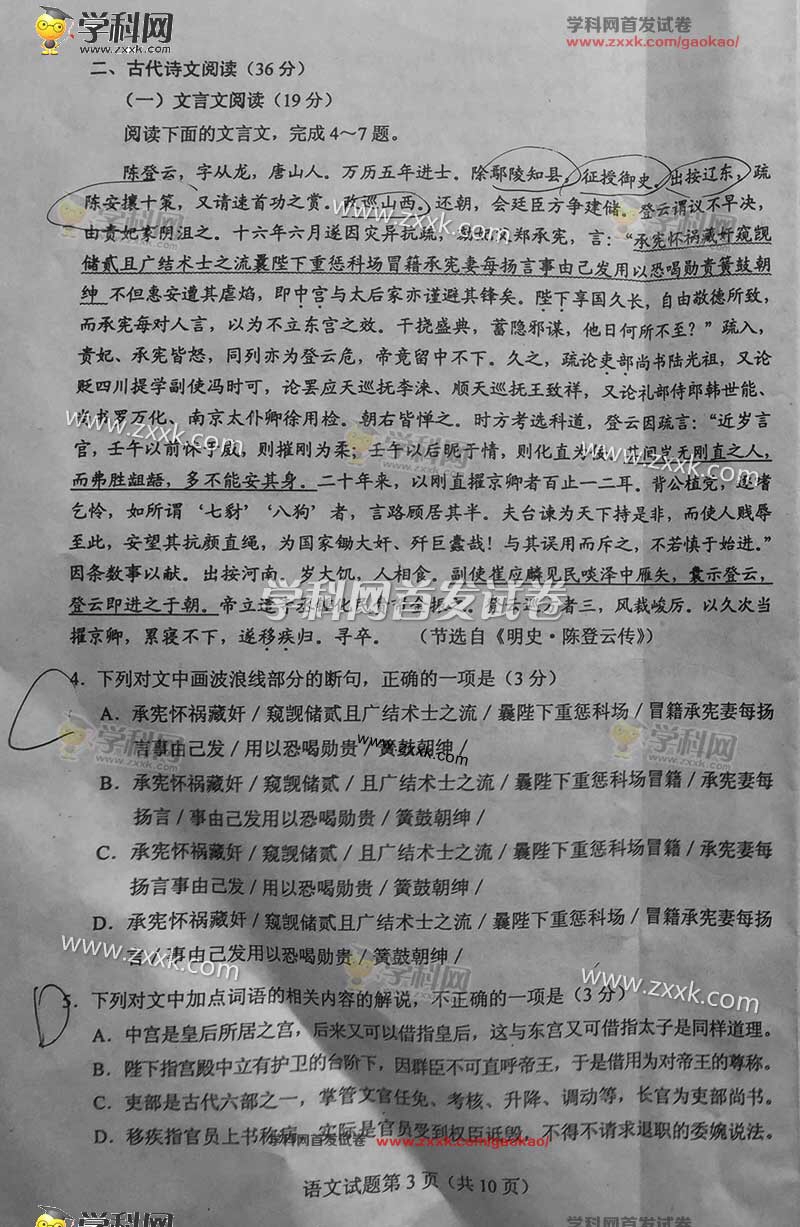 学科网
www.zxxk.com
学科网首发试卷
www.zxxk.com/gaokao/
二、古代诗文阅读(36分)
(一)文言文阅读(19分)
阅读下面的文言文，完成4～7题。
陈登云，字从龙，唐山人。万历五年进士。除鄢陵知县，征授御史。出按辽东，疏
陈安攘十策，又请速首功之赏。改巡山西。还朝，会廷臣方争建储。登云谓议不早决，
由贵妃家阴沮之。十六年六月遂因灾异抗疏，妃父郑承宪，言：“承宪怀祸藏奸窥觊
储贰且广结术士之流曩陛下重惩科场冒籍承宪妻每扬言事由己发用以恐喝勋贵簧鼓朝
绅 不但惠安遭其虐焰，即中宫与太后家亦谨避其锋矣。陛下享国久长，自由敬德所致，
而承宪每对人言，以为不立东宫之效。干挠盛典，蓄隐邪谋，他日何所不至？”疏入，
贵妃、承宪皆怒，同列亦为登云危，帝竟留中不下。久之，疏论吏部尚书陆光祖，又论
贬四川提学副使冯时可，论罢应天巡抚李涞、顺天巡抚王致祥，又论礼部侍郎韩世能、
尚书罗万化、南京太仆卿徐用检。朝右皆惮之。时方考选科道，登云因疏言：“近岁言
官，壬午以前怵于威，则摧刚为柔；壬午以后昵于情，则化直为佞。其间岂无刚直之人，
而弗胜龃龉，多不能安其身。二十年来，以刚直擢京卿者百止一二耳。背公植党，逐嗜
乞怜，如所谓‘七豺’‘八狗’者，言路顾居其半。夫台谏为天下持是非，而使人贱辱
至此，安望其抗颜直绳，为国家锄大奸、歼巨蠹哉！与其误用而斥之，不若慎于始进。”
因条数事以献。出按河南。岁大饥，人相食。副使崔应麟见民啖泽中雁矢，囊示登云，
登云即进之于朝。帝立遣寺丞锺化民分帑振之。登云巡方者三，风裁峻厉。以久次当
擢京卿，累寝不下，遂移疾归。寻卒。 (节选自《明史·陈登云传》)
4．下列对文中画波浪线部分的断句，正确的一项是(3分)
A．承宪怀祸藏奸/窥觊储贰且广结术士之流/曩陛下重惩科场/冒籍承宪妻每扬
言事由己发/用以恐喝勋贵/簧鼓朝绅/
B．承宪怀祸藏奸/窥觊储贰/且广结术士之流/曩陛下重惩科场/冒籍承宪妻每
扬言/事由己发用以恐喝勋贵/簧鼓朝绅/
C．承宪怀祸藏奸/窥觊储贰/且广结术士之流/曩陛下重惩科场冒籍/承宪妻每
扬言事由己发/用以恐喝勋贵/簧鼓朝绅/
D．承宪怀祸藏奸/窥觊储贰且广结术士之流/曩陛下重惩科场冒籍/承宪妻每扬
言/事由己发用以恐喝勋贵/簧鼓朝绅/
5．下列对文中加点词语的相关内容的解说，不正确的一项是(3分)
A．中宫是皇后所居之宫，后来又可以借指皇后，这与东宫又可借指太子是同样道理。
B．陛下指宫殿中立有护卫的台阶下，因群臣不可直呼帝王，于是借用为对帝王的尊称。
C．吏部是古代六部之一，掌管文官任免、考核、升降、调动等，长官为吏部尚书。
D．移疾指官员上书称病，实际是官员受到权臣诋毁，不得不请求退职的委婉说法。
学科网首发试卷 www.zxxk.com/gaokao/
语文试题第3页(共10页)